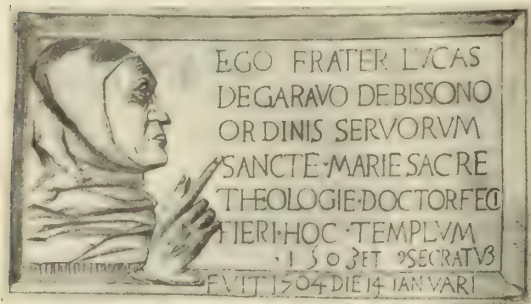 EGO FRATER LVCAS
DEGARAVO DEBISSONO
ORDINIS SERVORVM
SANCTE·MARIE SACRE
THEOLOGIE·DOCTOR FECI
FIERI·HOC·TEMPLVM
·1503 ET 9SECRATVS
FVIT 1504 DIE 14 IANVARI